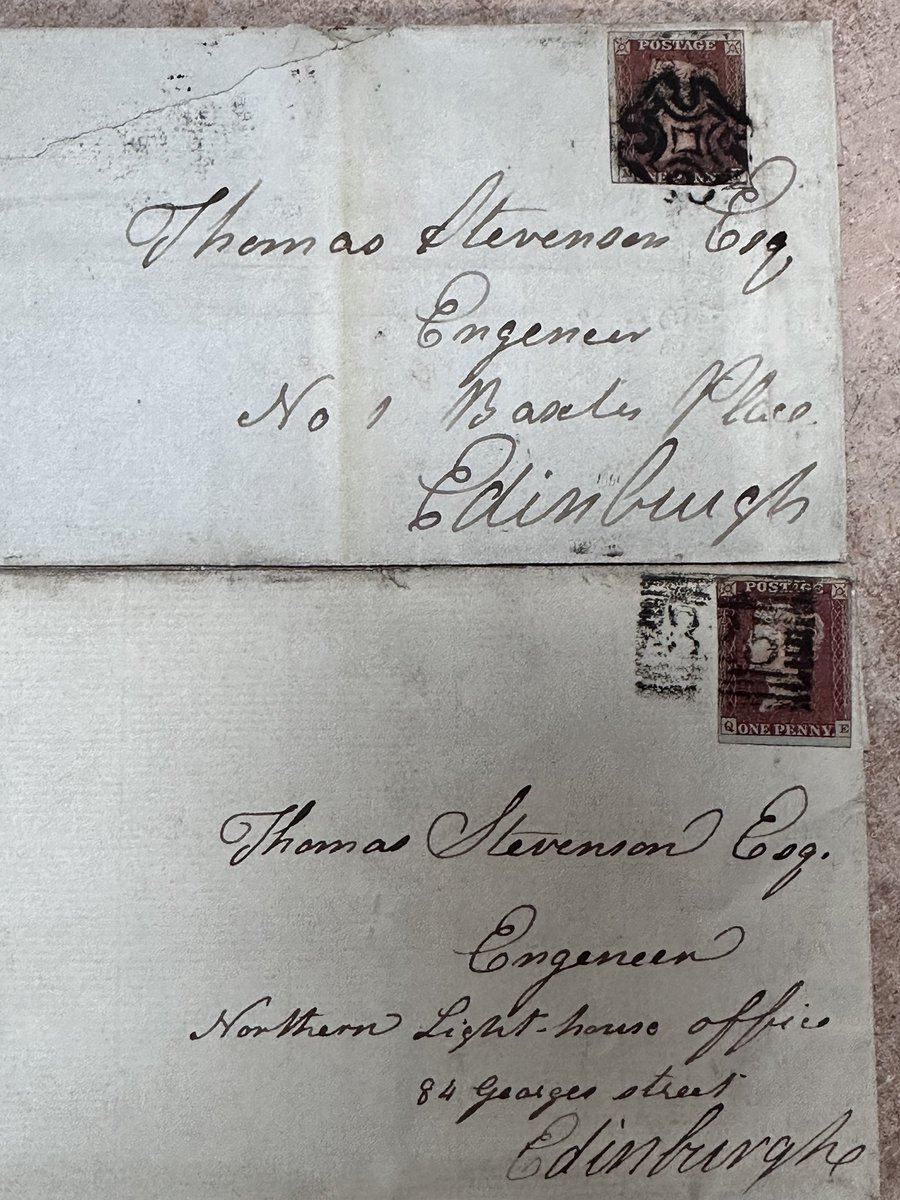 POSTAGE
Thomas Stevenson Esq
Engeneer
No 1 Baxter Place
Edinburgh
POSTAGE
B
Q ONE PENNY. E
Thomas Stevenson Esq.
Engeneer
Northern Light-house office
84 Georges street
Edinburgh